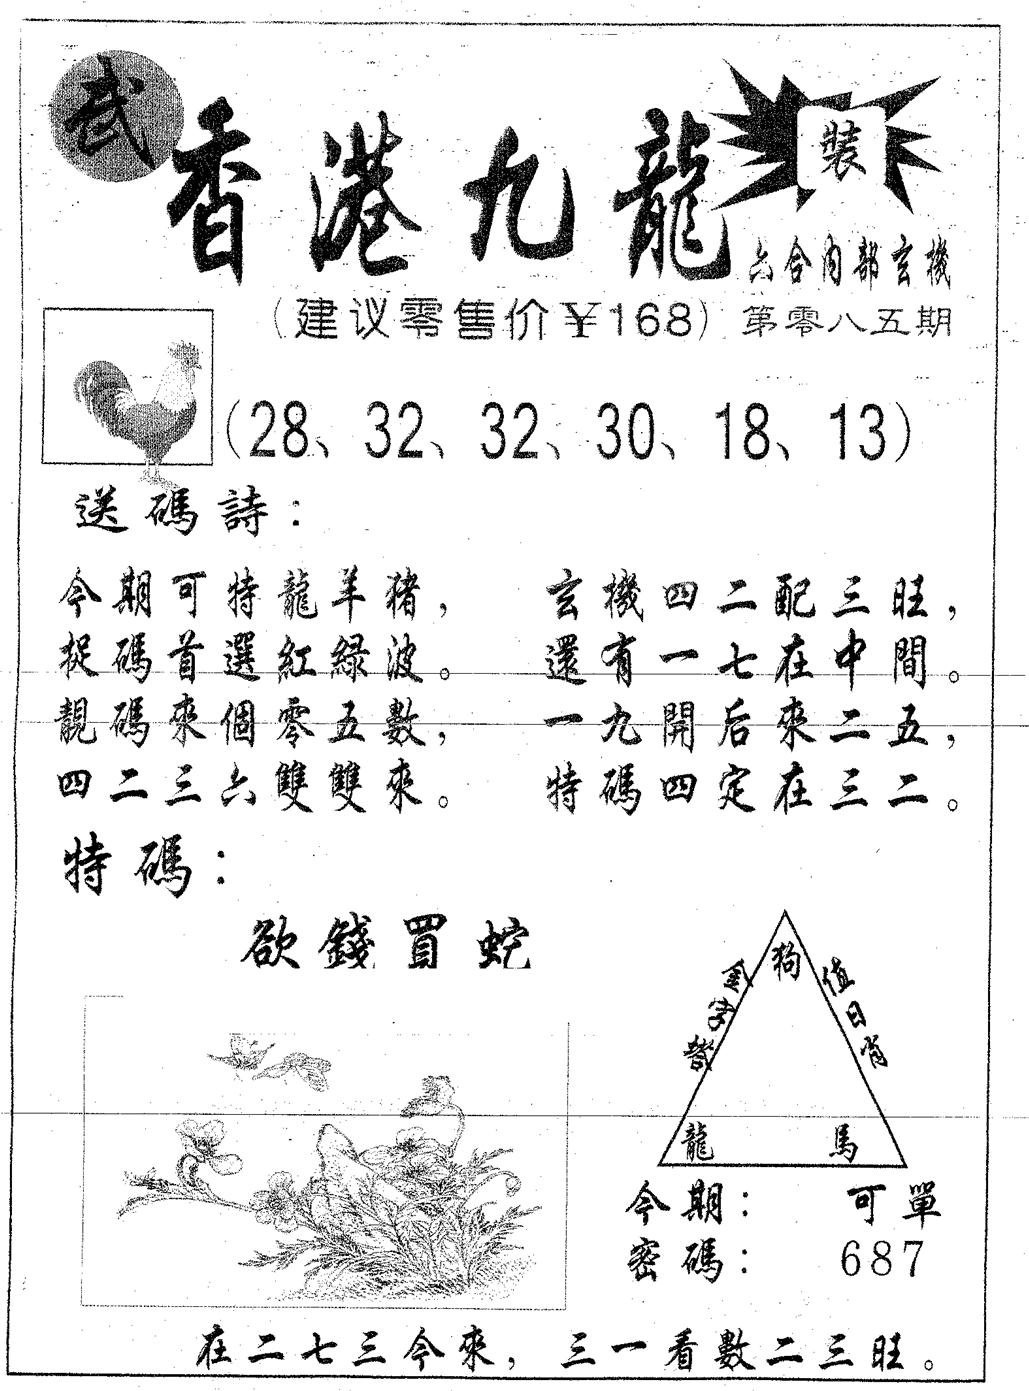 武 香港九龍 裝
六合内部玄機
(建议零售价¥168) 第零八五期
(28、32、32、30、18、13)
送碼詩：
今期可特龍羊豬，
捉碼首選紅綠波。
靚碼來個零五數，
四二三六雙雙來。
玄機四二配三旺，
還有一七在中間。
一九開后來二五，
特碼四定在三二。
特碼：
欲錢買蛇
金字塔
狗
值日肖
龍 馬
今期： 可單
密碼： 687
在二七三今來，三一看數二三旺。